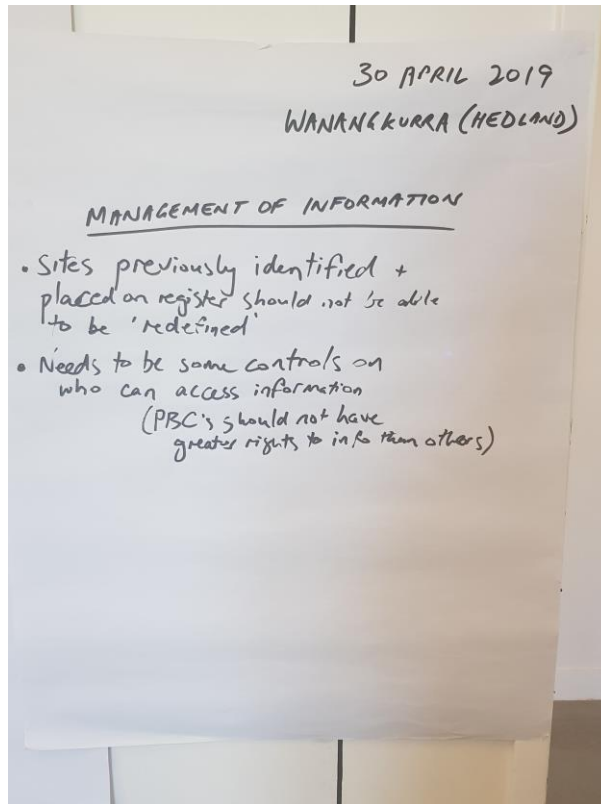 30 APRIL 2019
WANANGKURRA (HEDLAND)
MANAGEMENT OF INFORMATION
• Sites previously identified +
placed on register should not be able
to be 'redefined'
• Needs to be some controls on
who can access information
(PBC's should not have
greater rights to info than others)